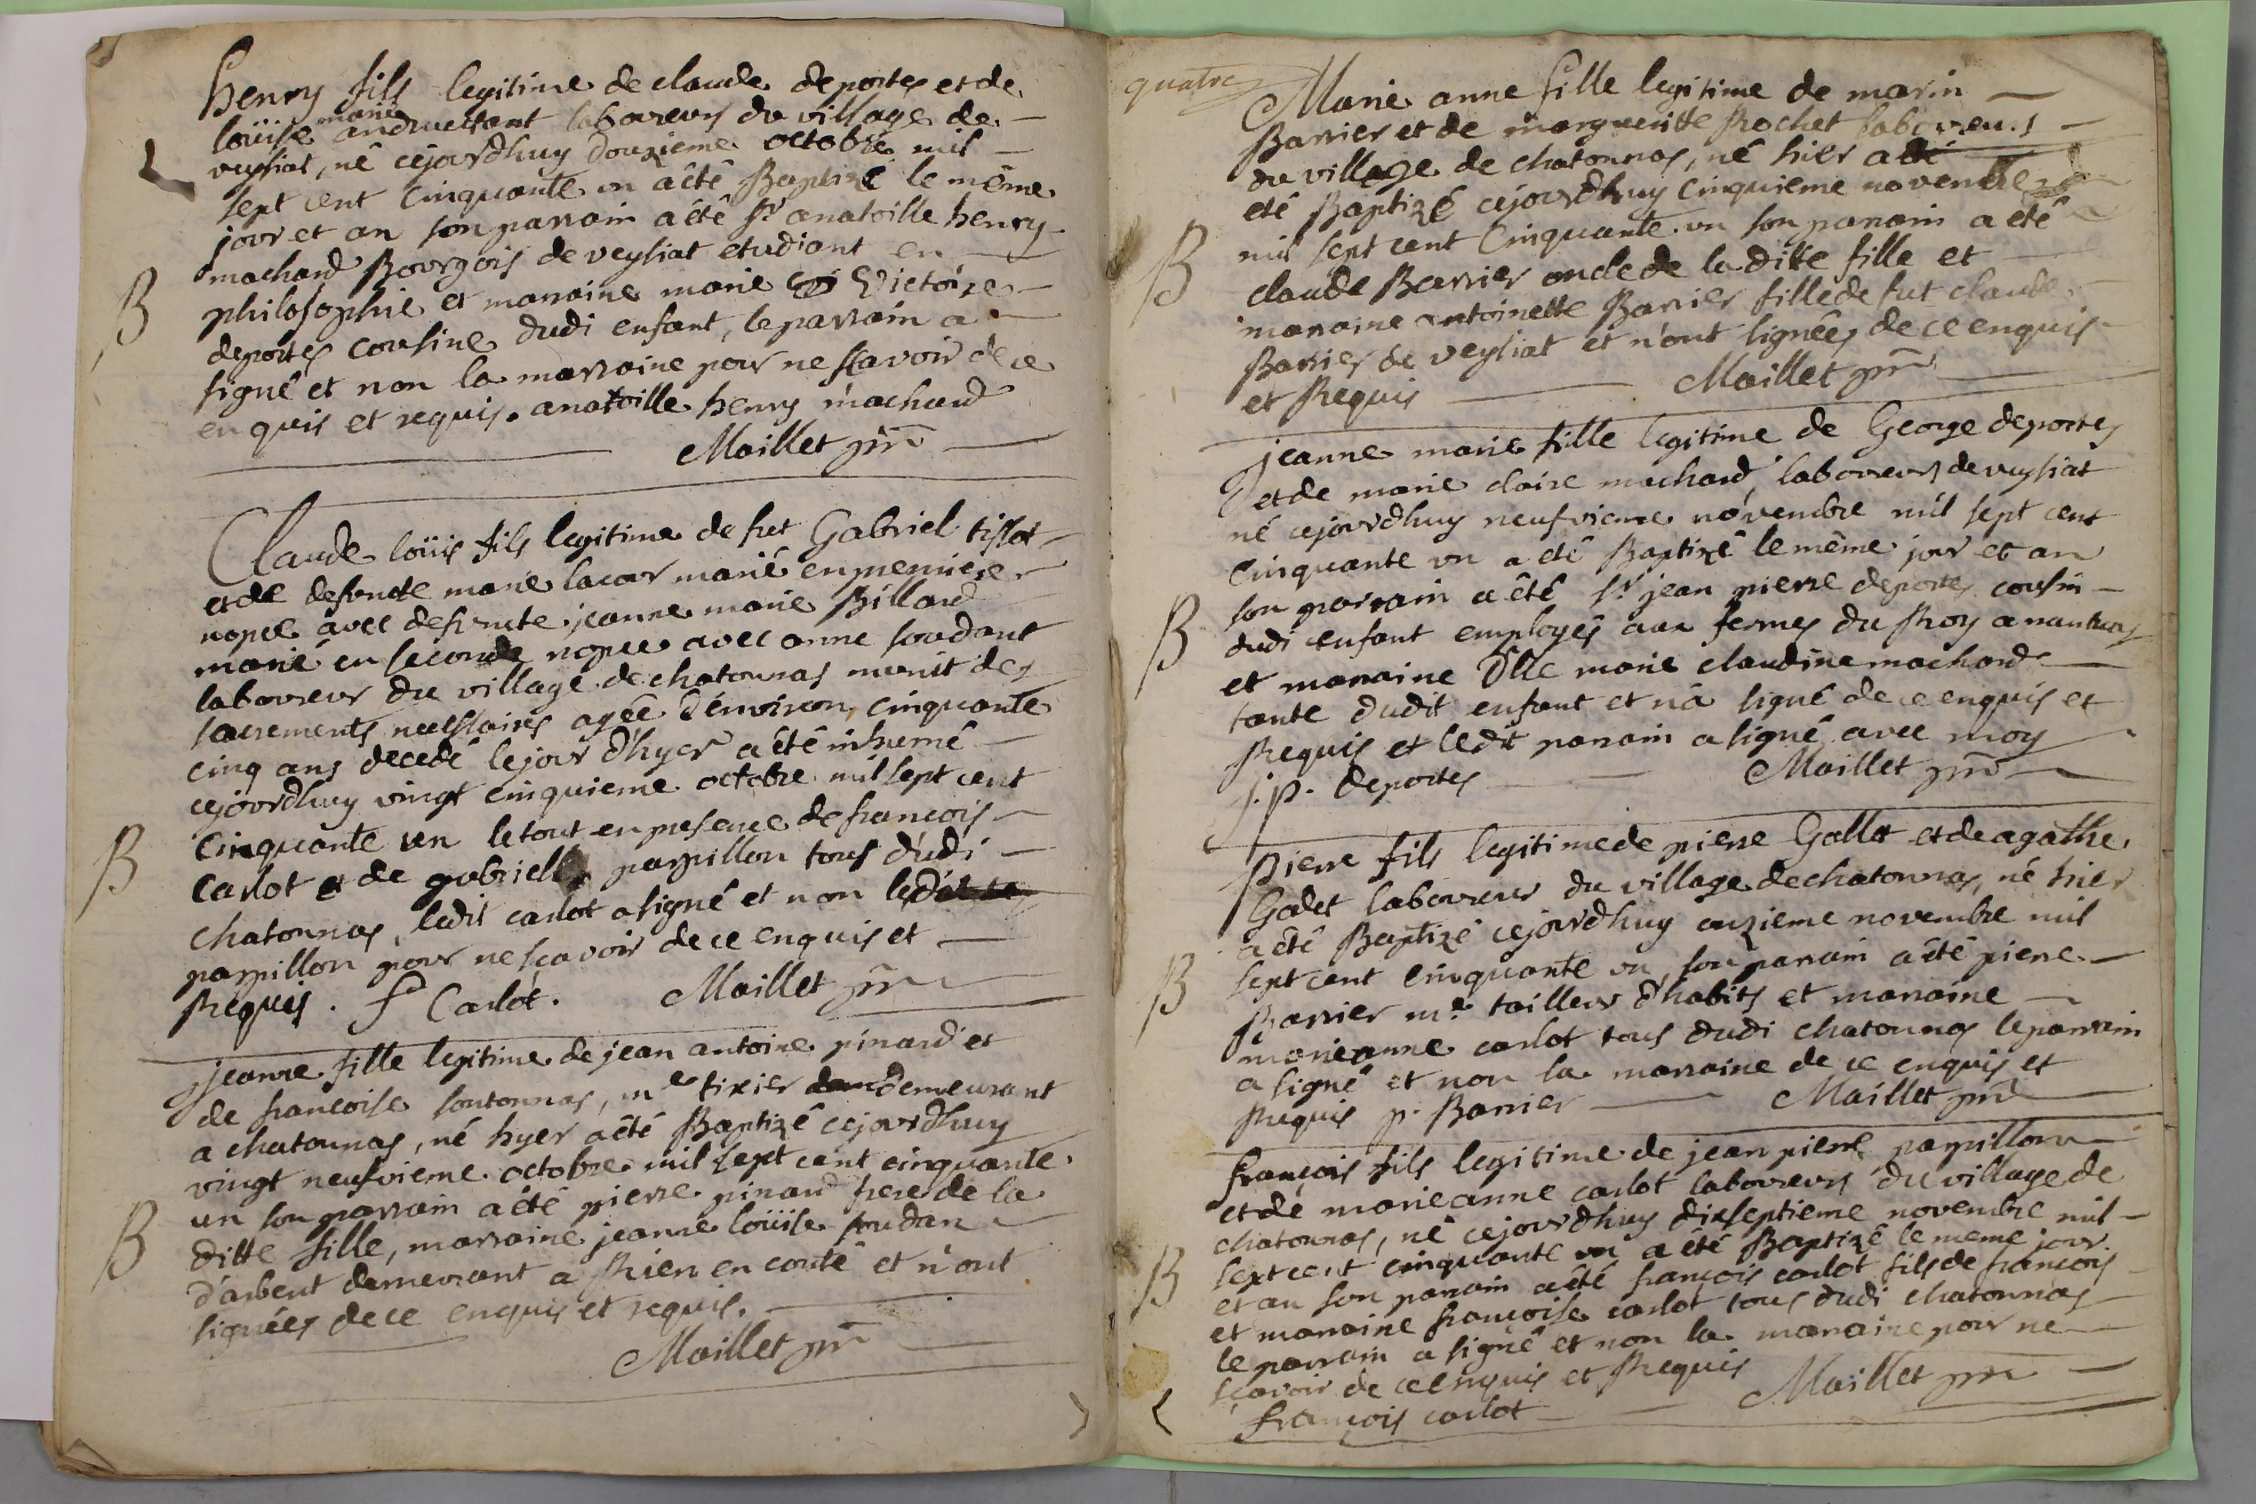 henry fils legitime de claude deportes et de
loüise marie andruessant laboureurs du village de
veysiat, né cejourdhuy douzieme octobre mil
sept cent cinquante un a été Baptizé le même
jour et an son parrain a été Sr anatoille henry
machard Bourgois de veysiat etudiant en
philosophie et marraine marie Victoire
deportes cousine dudi enfant, le parrain a
signé et non la marraine pour ne scavoir de ce
enquis et requis. anatoille henry machard
Maillet prr
B
Claude loüis fils legitime de fut Gabriel tissot
et de defunte marie lacour marié en premiere
nopce avec defunte jeanne marie Billard
marié en seconde nopce avec anne soudant
laboureur du village de chatonnas munit des
sacrements necessaires agée d'environ cinquante
cinq ans decedé le jour d'hyer a été inhumé
cejourdhuy vingt cinquieme octobre mil sept cent
cinquante un le tout en presence de francois
carlot et de gabriel papillon tous dudi
chatonnas, ledit carlot a signé et non ledit
papillon pour ne scavoir de ce enquis et
Requis. f Carlot. Maillet prr
B
jeanne fille legitime de jean antoine pinard et
de francoise soutonnas, me tixier demeurant
a chatonnas, né hyer a été Baptizé cejourdhuy
vingt neufvieme octobre mil sept cent cinquante
un son parrain a été pierre pinard frere de la
ditte fille, marraine jeanne loüise soudan
d'arbent demeurant a Rien en conté et n'ont
signées de ce enquis et requis.
Maillet prr
B
quatre
Marie anne fille legitime de marin
Barrier et de margueritte Rochet laboureurs
du village de chatonnas, né hier a
eté Baptizé cejourdhuy cinquieme novembre
mil sept cent cinquante un son parrain a été
claude Barrier oncle de la ditte fille et
marraine antoinette Barrier fille de fut claude
Barrier de veysiat et n'ont signées de ce enquis
et Requis Maillet prr
B
jeanne marie fille legitime de George deportes
et de marie claire machard, laboureurs de veysiat
né cejourdhuy neufvieme novembre mil sept cent
cinquante un a eté Baptizé le même jour et an
son parrain a été Sr jean pierre deportes cousin
dudi enfant employés aux fermes du Roy a nantuas
et marraine Dlle marie claudine machard
tante dudit enfant et n'a signé de ce enquis et
Requis et ledit parrain a signé avec moy
j. p. deportes Maillet prr
B
pierre fils legitime de pierre Gallet et de agathe
Godet laboureur du village de chatonnas, né hier
a été Baptizé cejourdhuy onzieme novembre mil
sept cent cinquante un, son parrain a été pierre
Barrier me tailleur d'habits et marraine
marieanne carlot tous dudi chatonnas le parrain
a signé et non la marraine de ce enquis et
Requis p. Barrier Maillet prr
B
françois fils legitime de jean pierre papillon
et de marieanne carlot laboureurs du village de
chatonnas, né cejourdhuy dixseptieme novembre mil
sept cent cinquante un a été Baptizé le meme jour
et an son parrain a été françois carlot fils de francois
et marraine françoise carlot tous dudi chatonnas
le parrain a signé et non la marraine pour ne
sçavoir de ce enquis et Requis Maillet prr
françois carlot
B